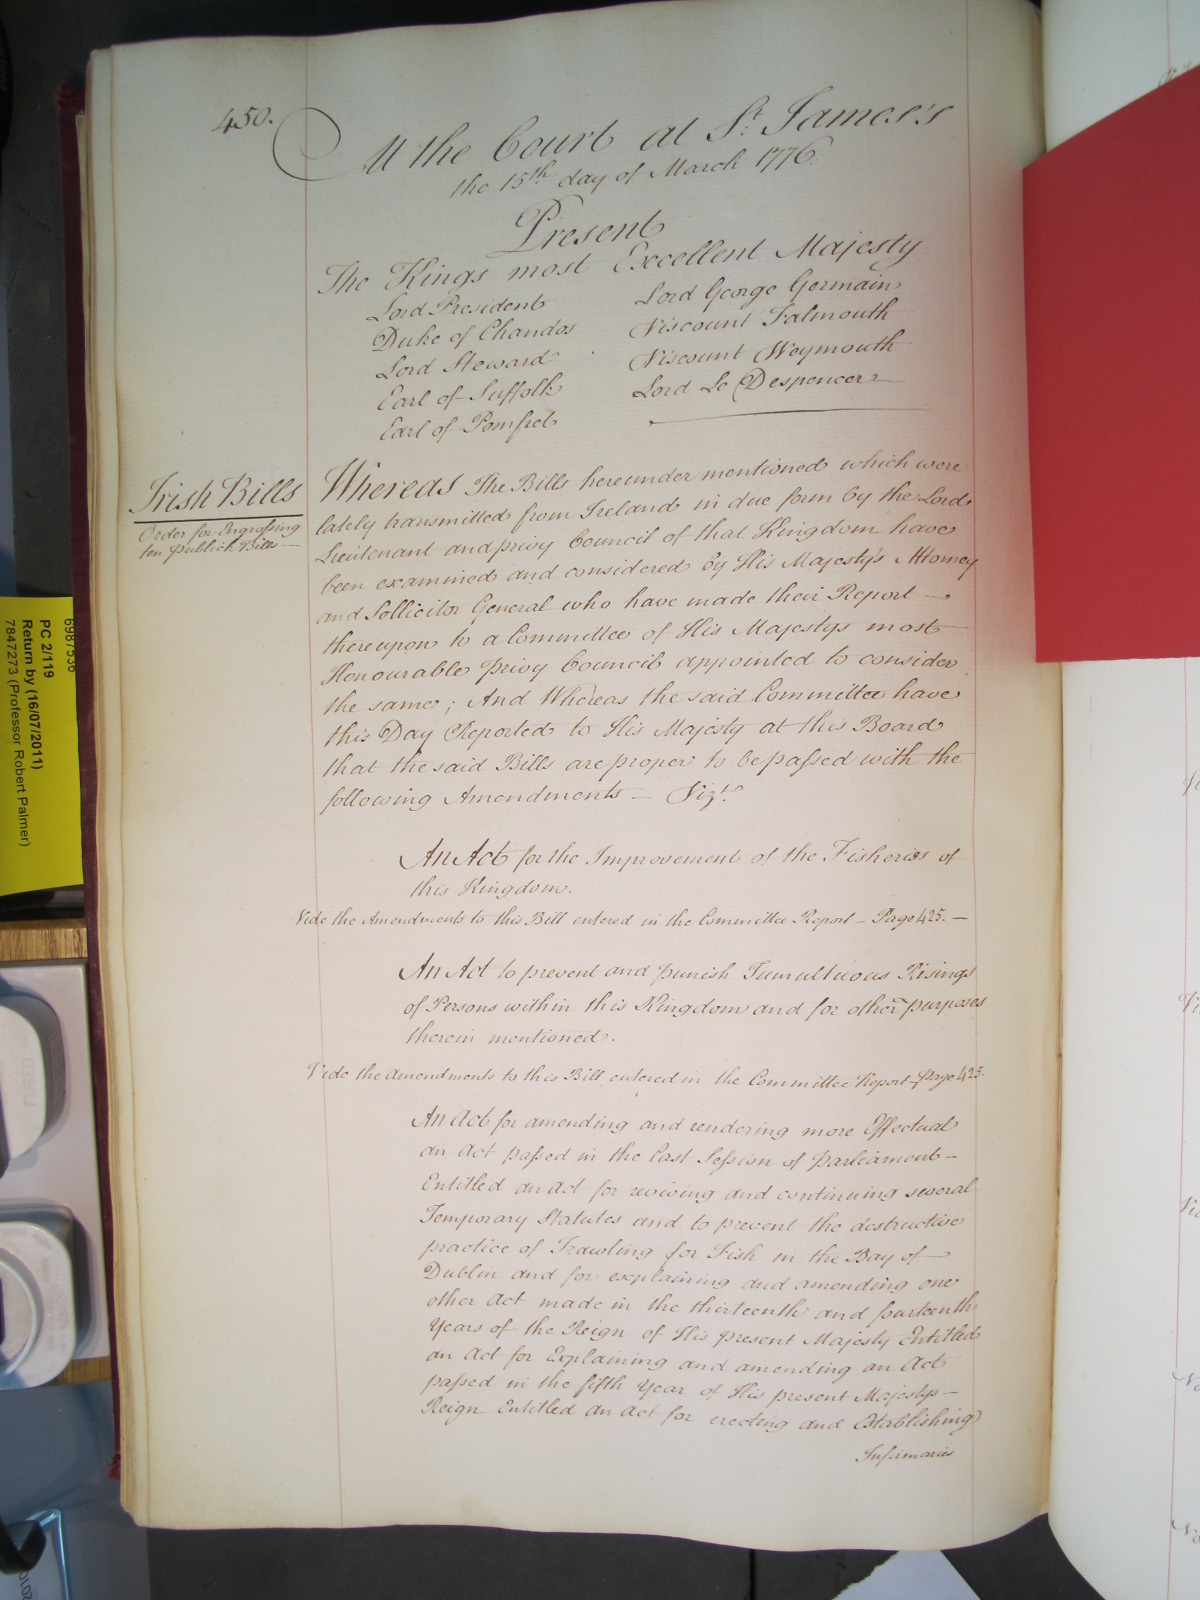 450.
At the Court at St. James's
the 15th day of March 1776.
Present
The Kings most Excellent Majesty
Lord President
Duke of Chandos
Lord Steward
Earl of Suffolk
Earl of Pomfret
Lord George Germain
Viscount Falmouth
Viscount Weymouth
Lord Le Despencer
Irish Bills
Order for Engrossing
ten publick Bills —
Whereas The Bills hereunder mentioned which were
lately transmitted from Ireland in due form by the Lord
Lieutenant and privy Council of that Kingdom have
been examined and considered by His Majesty's Attorney
and Sollicitor General who have made their Report —
thereupon to a Committee of His Majestys most
Honourable privy Council appointed to consider
the same; And Whereas the said Committee have
this Day Reported to His Majesty at this Board
that the said Bills are proper to be passed with the
following Amendments — Vizt.
An Act for the Improvement of the Fisheries of
this Kingdom.
Vide the Amendments to this Bill entered in the Committee Report — Page 425. —
An Act to prevent and punish Tumultuous Risings
of Persons within this Kingdom and for other purposes
therein mentioned.
Vide the Amendments to this Bill entered in the Committee Report — page 425.
An Act for amending and rendering more Effectual
an Act passed in the Last Session of Parliament —
Entitled an Act for reviving and continuing several
Temporary Statutes and to prevent the destructive
practice of Trawling for Fish in the Bay of —
Dublin and for explaining and amending one
other Act made in the thirteenth and fourteenth
Years of the Reign of His present Majesty Entitled
an Act for Explaining and amending an Act
passed in the fifth Year of His present Majestys —
Reign Entitled an Act for erecting and Establishing
Infirmaries
6987536
PC 2/119
Return by (16/07/2011)
7847273 (Professor Robert Palmer)